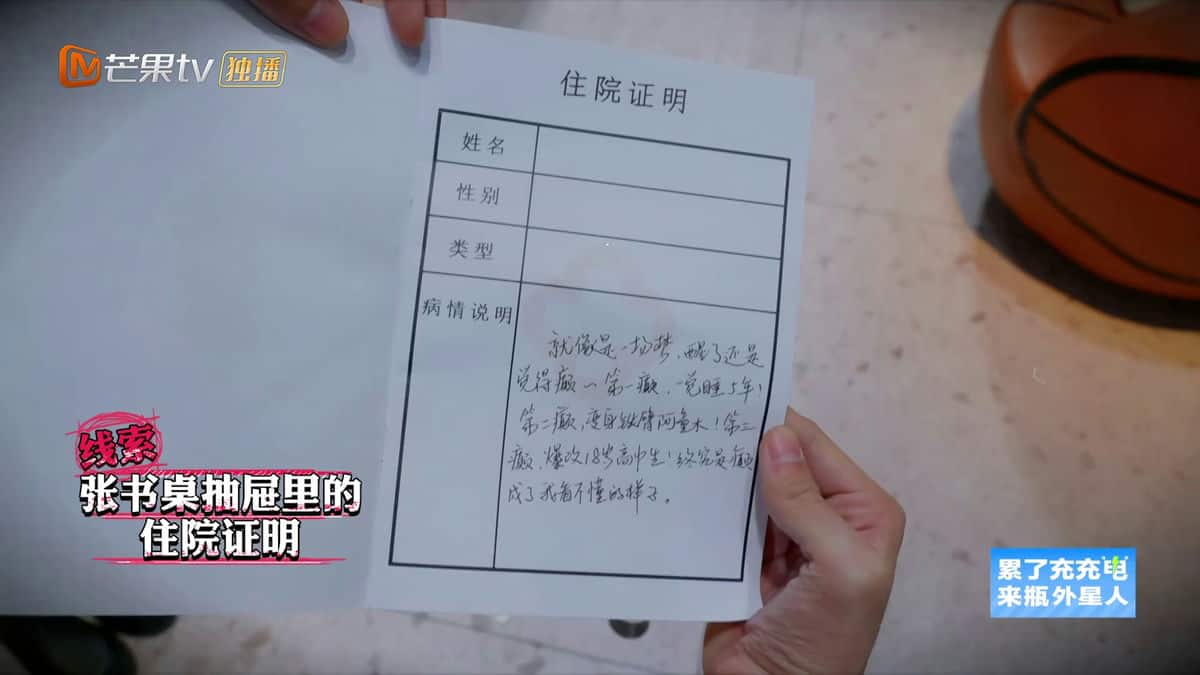 芒果tv 独播
住院证明
姓名
性别
类型
病情说明
就像是一场梫，醒了还是
觉得癫～第一癫，一觉睡5年！
第二癫，变身铁臂阿童木！第三
癫，爆改18岁高中生！终究是癫
成了我看不懂的样子。
线索
张书桌抽屉里的
住院证明
累了充充电
来瓶外星人